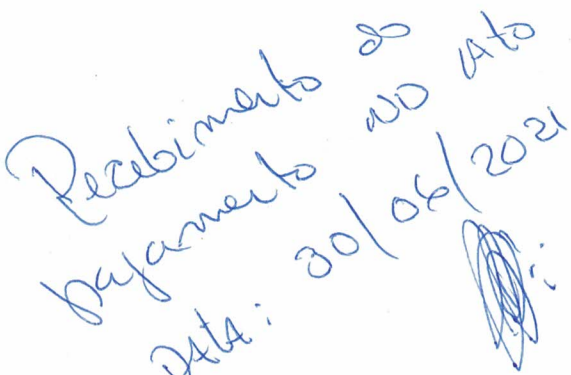 Recebimento do
pagamento NO Ato
DATA: 30/06/2021